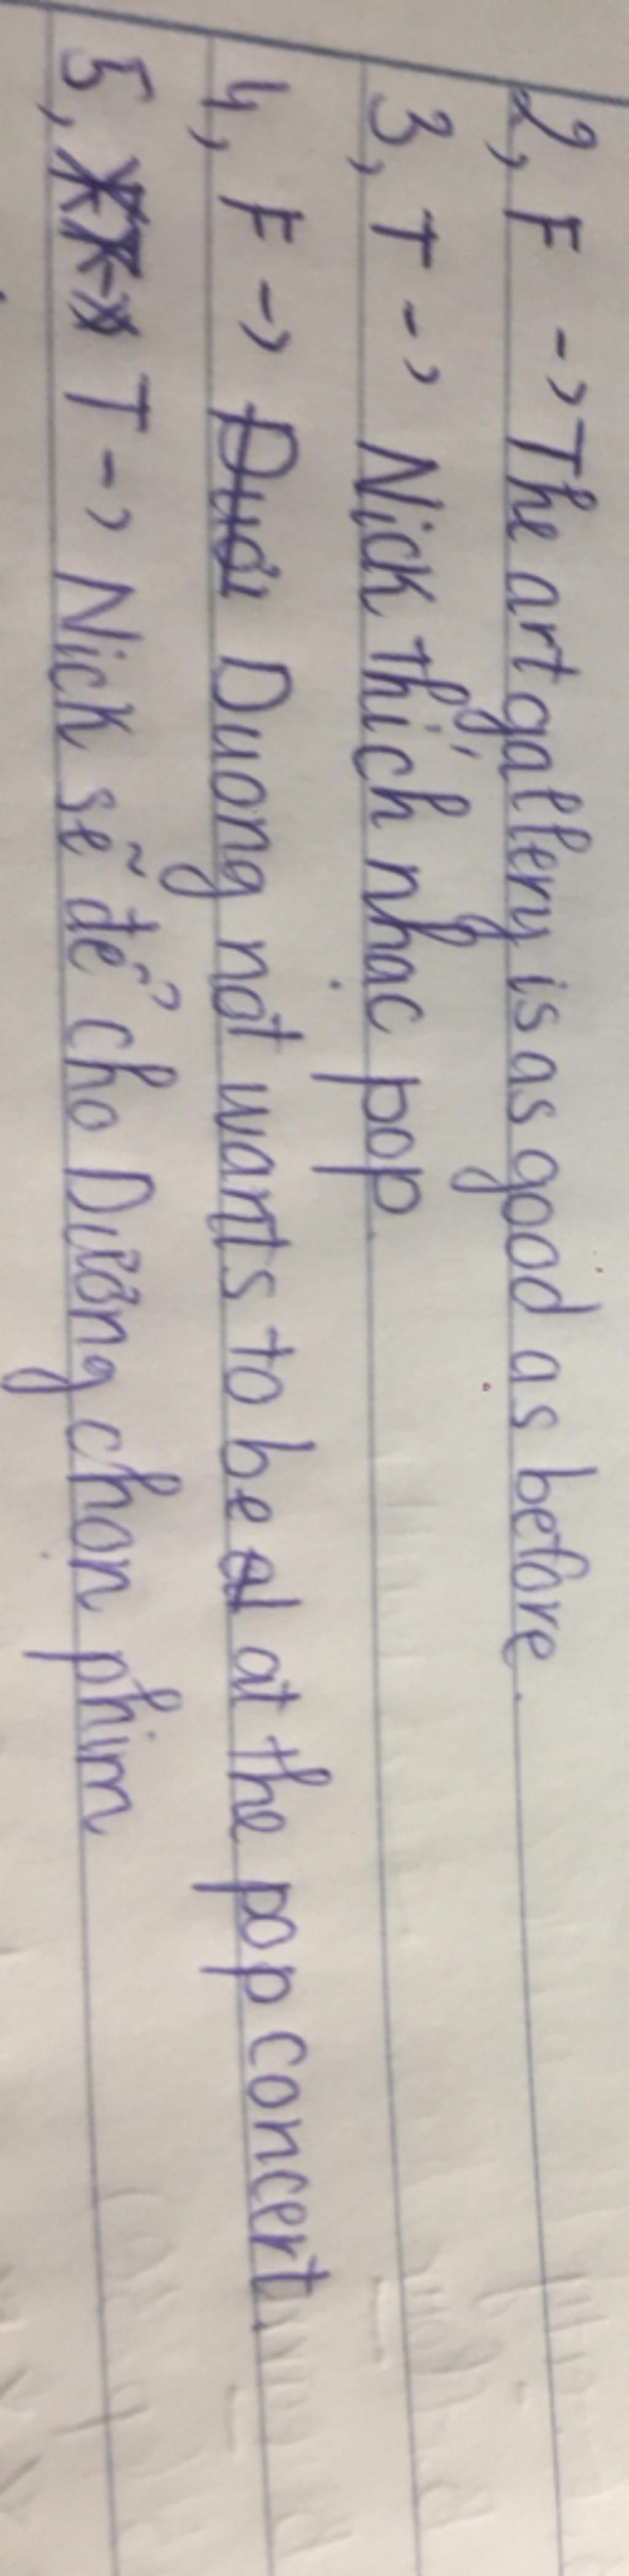 2, F -> The art gallery is as good as before.
3, T -> Nick thích nhạc pop.
4, F -> Duong not wants to be at the pop concert.
5, T -> Nick sẽ để cho Dương chọn phim